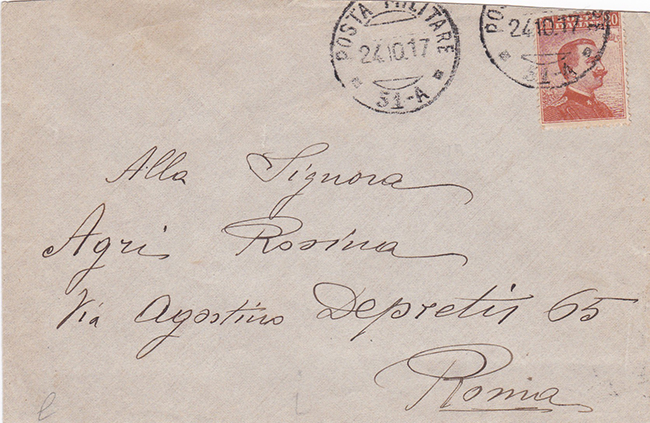 POSTA MILITARE
24.10.17
51-A
24.10.17
51-A
20
Alla Signora
Agri Rosina
Via Agostino Depretis 65
Roma